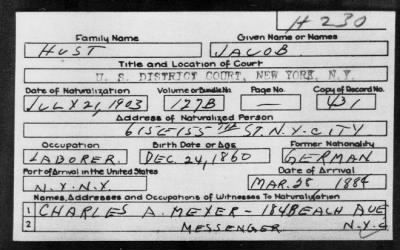 H 230
Family Name Given Name or Names
HUST JACOB
Title and Location of Court
U. S. DISTRICT COURT, NEW YORK, N.Y.
Date of Naturalization Volume or Bundle No. Page No. Copy of Record No.
JULY 21, 1903 127B — 431
Address of Naturalized Person
615 E 155TH ST. N.Y. CITY
Occupation Birth Date or Age Former Nationality
LABORER. DEC. 24, 1860 GERMAN
Port of Arrival in the United States Date of Arrival
N.Y. N.Y. MAR. 28 1884
Names, Addresses and Occupations of Witnesses To Naturalization
1 CHARLES A. MEYER - 184 BEACH AVE
2 MESSENGER N.Y.C